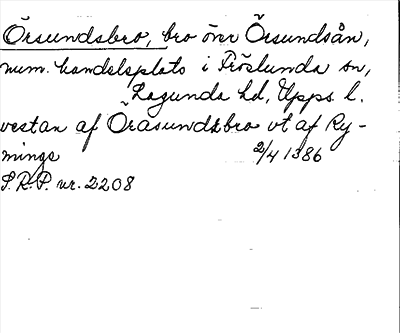 Örsundsbro, bro över Örsundsån,
num. handelsplats i Fröslunda sn,
Lagunda hd, Upps. l.
vestan af Örasundzbro vt af Ry-
minge 2/4 1386
S.R.P. nr. 2208